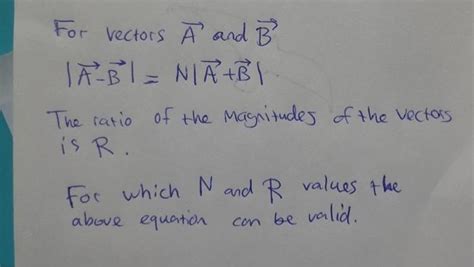 For vectors A⃗ and B⃗
|A⃗-B⃗| = N|A⃗+B⃗|
The ratio of the Magnitudes of the vectors
is R.
For which N and R values the
above equation can be valid.